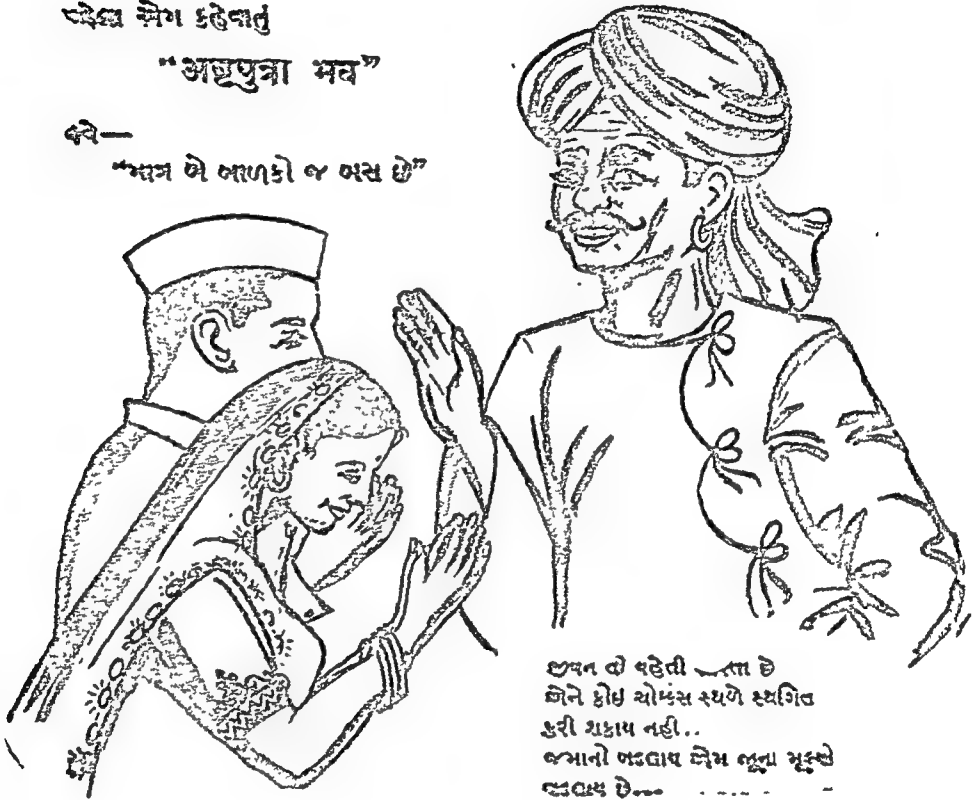 પહેલા એમ કહેવાતું
“અષ્ટપુત્રા ભવ”
હવે—
“માત્ર બે બાળકો જ બસ છે”
જીવન તો વહેતી છે
જેને કોઇ ચોક્કસ સ્થળે સ્થગિત
કરી શકાય નહી..
જમાનો બદલાય એમ જૂના મૂલ્યો
બદલાય છે...